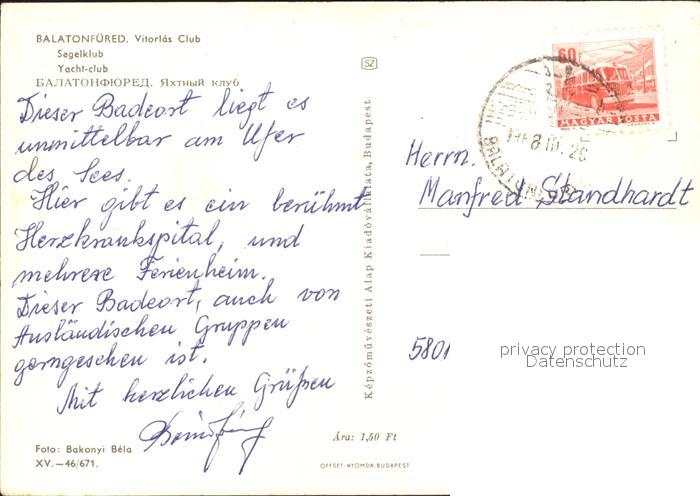 BALATONFÜRED. Vitorlás Club
Segelklub
Yacht-club
БАЛАТОНФЮРЕД. Яхтный клуб
Dieser Badeort liegt es
unmittelbar am Ufer
des Sees.
Hier gibt es ein berühmt
Herzkrankspital, und
mehrere Ferienheim.
Dieser Badeort, auch von
Ausländischen Gruppen
gerngesehen ist.
Mit herzlichen Grüßen
Foto: Bakonyi Béla
XV.—46/671.
SZ
Képzőművészeti Alap Kiadóvállalata, Budapest
Ára: 1,50 Ft
OFFSET-NYOMDA, BUDAPEST
60f
MAGYAR POSTA
Herrn.
Manfred Standhardt
5801
privacy protection
Datenschutz